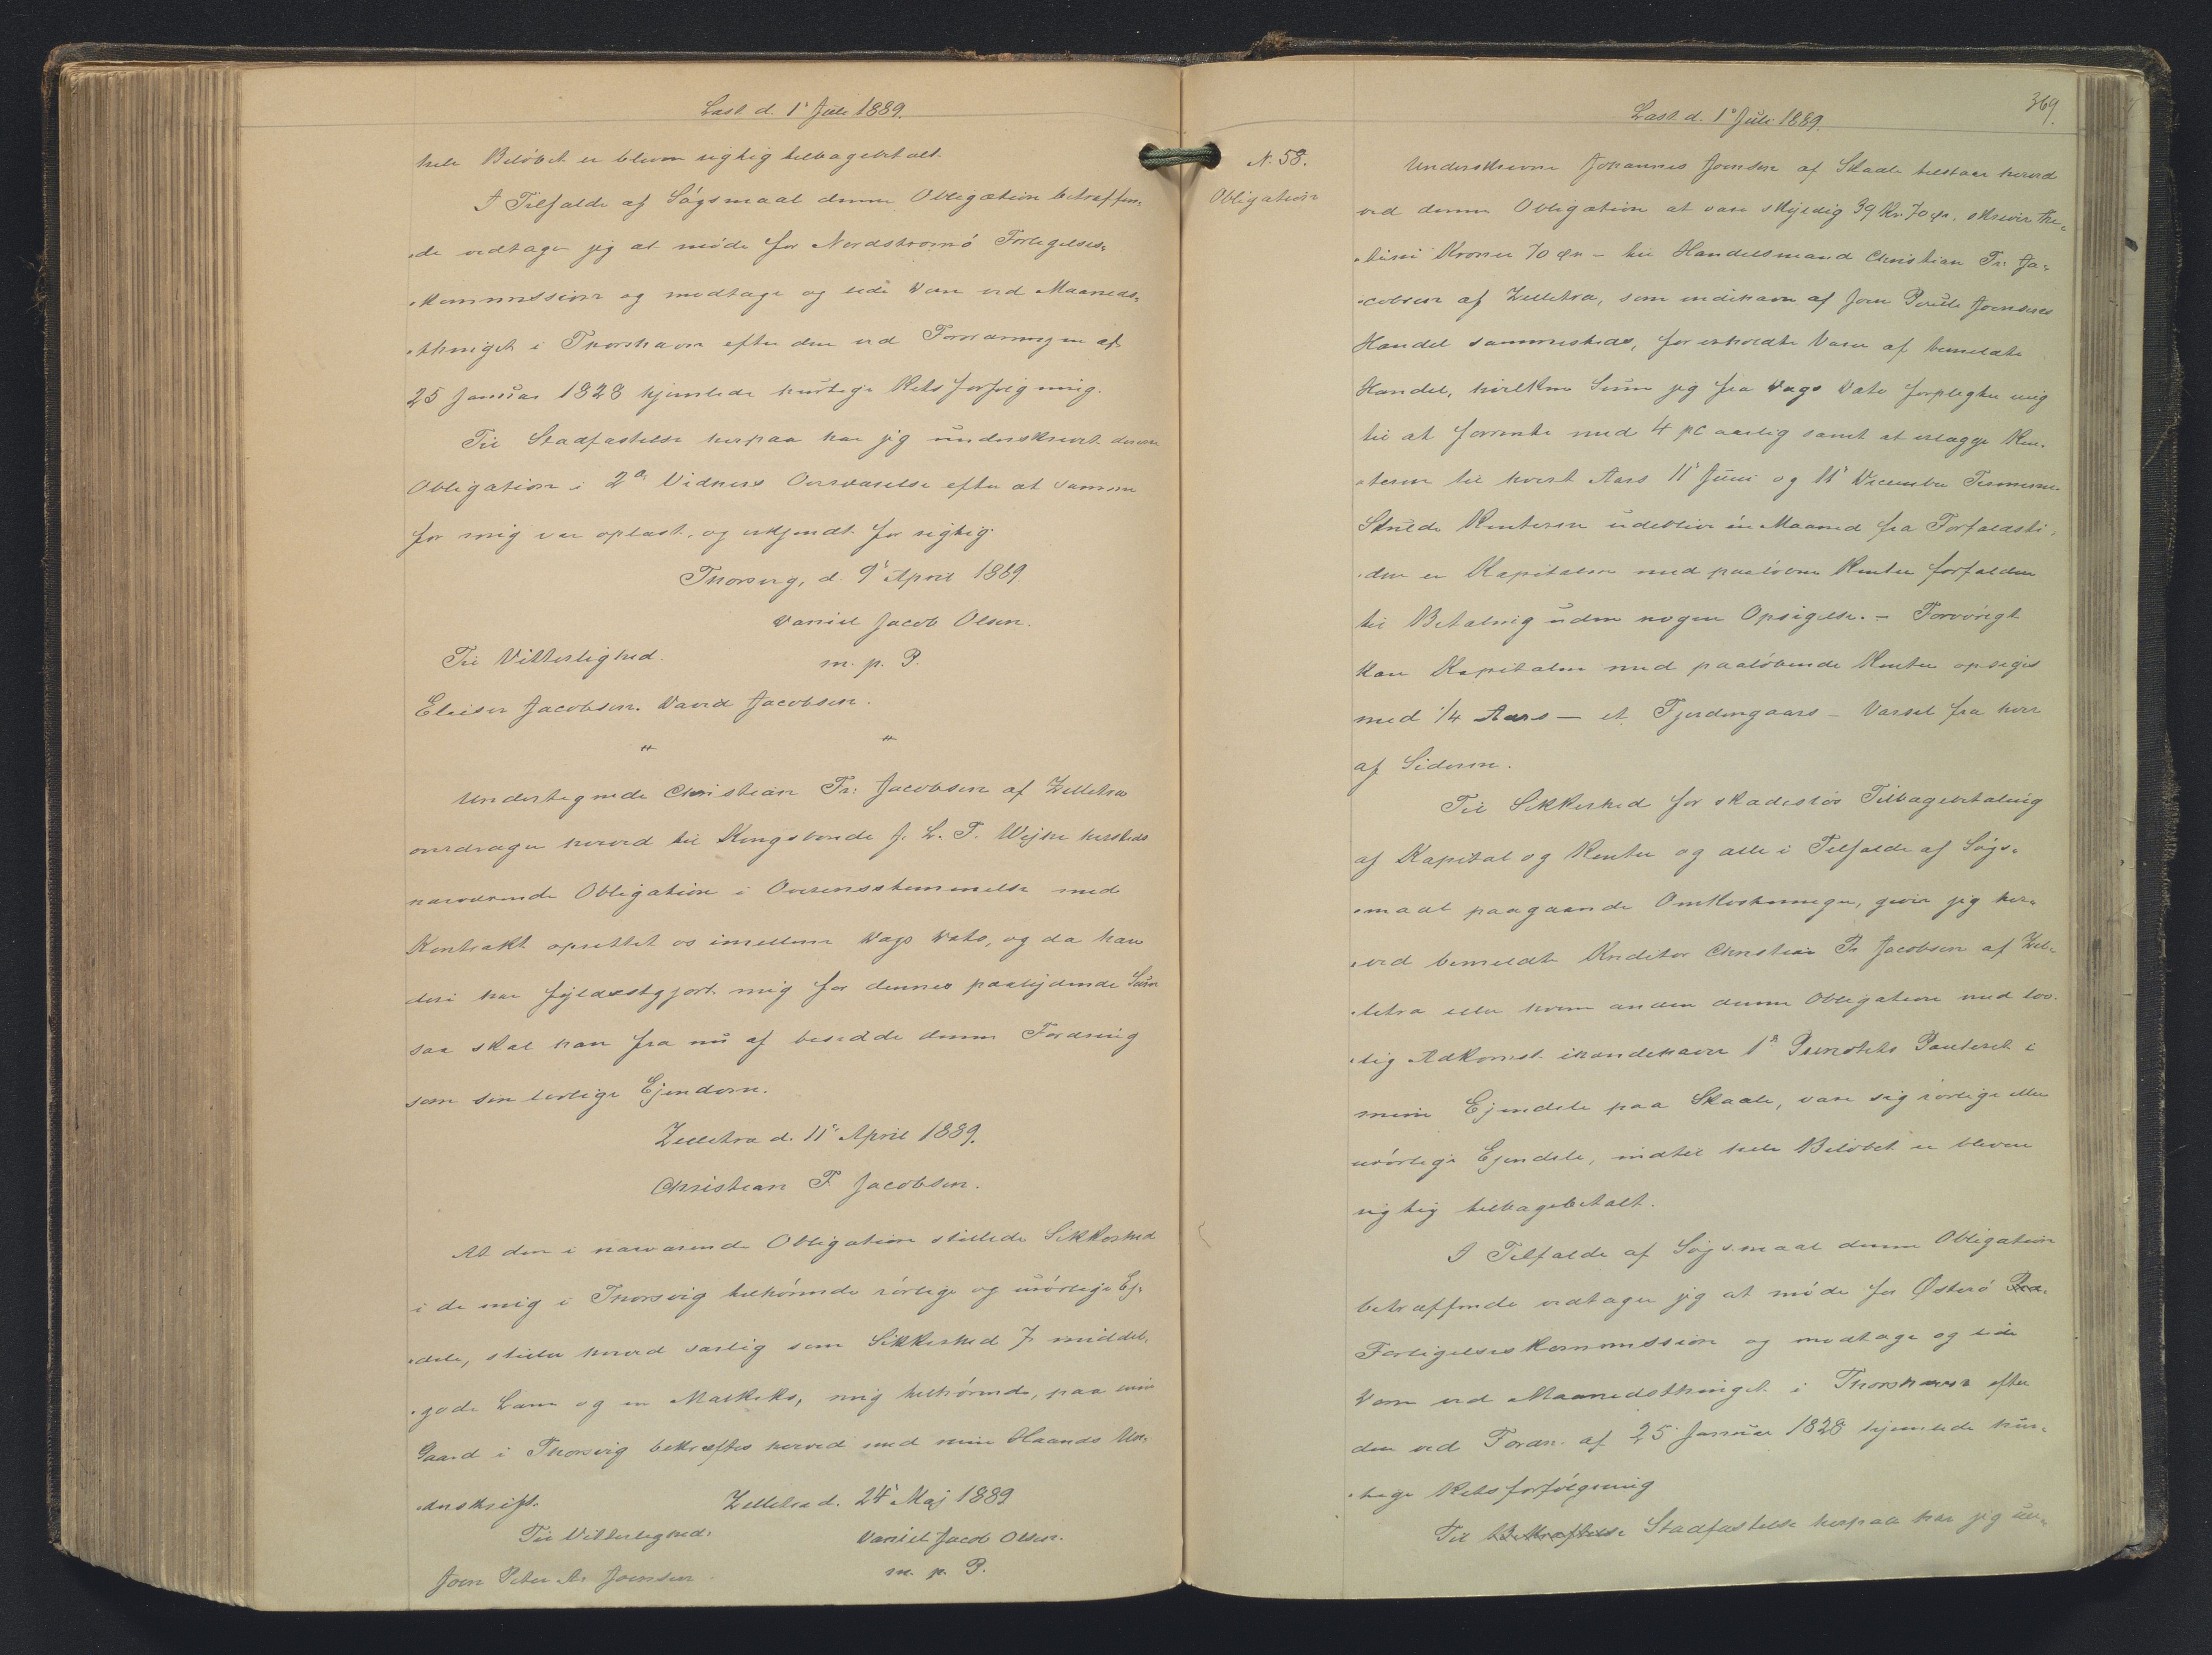 Læst d. 1' Juli 1889.
hele Beløbet er bleven rigtig tilbagebetalt.
I Tilfælde af Søgsmaal denne Obligation betræffen-
de vedtager jeg at møde for Nordstrømø Forligelses-
kommission og modtage og lide Dom ved Maaneds-
thinget i Thorshavn efter den ved Forordningen af
25 Januar 1828 hjemlede hurtige Retsforfølgning.
Til Stadfæstelse herpaa har jeg underskrevet denne
Obligation i 2de Vidners Overværelse efter at samme
for mig var oplæst, og erkjendt for rigtig.
Thorsvig, d. 9' April 1889
Daniel Jacob Olsen.
Til Vitterlighed. m. p. P.
Elieser Jacobsen. David Jacobsen.
" "
Undertegnede Christian Fr: Jacobsen af Zelletræ
overdrager herved til Kongsbonde J. L. T. Wejhe hersteds
nærværende Obligation i Overensstemmelse med
Kontrakt oprettet os imellem Dags Dato, og da han
deri har fyldestgjort mig for dennes paalydende Sum
saa skal han fra nu af besidde denne Fordring
som sin lovlige Ejendom.
Zelletræ d. 11' April 1889.
Christian F. Jacobsen.
At den i nærværende Obligation stillede Sikkerhed
i de mig i Thorsvig tilhørende rørlige og urørlige Ej-
dele, stiller herved særlig som Sikkerhed 7 middel-
gode Lam og en Malkeko, mig tilhørende, paa min
Gaard i Thorsvig bekræftes herved med min Haands Un-
derskrift. Zelletræ d. 24' Maj 1889
Til Vitterlighed: Daniel Jacob Olsen.
Joen Peter A. Joensen m. p. P.
369.
Læst d. 1' Juli 1889.
N. 58.
Obligation
Underskrevne Johannes Joensen af Skaale tilstaar herved
ved denne Obligation at være skyldig 39 Kr. 70 Ør. skriver Tre-
tini Kroner 70 Ør – til Handelsmand Christian Fr: Ja-
cobsen af Zelletræ, som indehaver af Joen Poule Joensens
Handel sammesteds, for erholdte Varer af bemeldte
Handel, hvilken Sum jeg fra Dags Dato forpligter mig
til at forrente med 4 pC aarlig samt at erlægge Ren-
terne til hvert Aars 11' Juni og 11' December Terminer.
Skulde Renterne udeblive én Maaned fra Forfaldsti-
den er Kapitalen med paaløbne Renter forfalden
til Betaling uden nogen Opsigelse. – Forøvrigt
kan Kapitalen med paaløbende Renter opsiges
med 1/4 Aars – et Fjerdingaars – Varsel fra hver
af Siderne.
Til Sikkerhed for skadesløs Tilbagebetaling
af Kapital og Renter og alle i Tilfælde af Søgs-
maal paagaaende Omkostninger, giver jeg her-
ved bemeldte Kreditor Christian Fr Jacobsen af Zel-
letræ eller hvem anden denne Obligation med lov-
lig Adkomst ihændehaver 1ste Prioritets Panteret i
mine Ejendele paa Skaale, være sig rørlige eller
urørlige Ejendele, indtil hele Beløbet er bleven
rigtig tilbagebetalt.
I Tilfælde af Søgsmaal denne Obligation
betræffende vedtager jeg at møde for Østerø
Forligelseskommission og modtage og lide
Dom ved Maanedsthinget i Thorshavn efter
den ved Fordn. af 25 Januar 1828 hjemlede hur-
tige Retsforfølgning
Til Bekræftelse Stadfæstelse herpaa har jeg un-